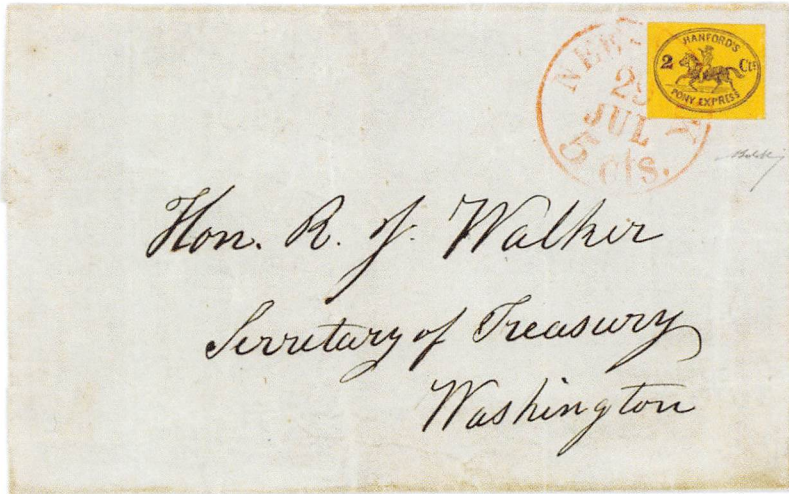 HANFORD'S
2 Cts
PONY EXPRESS
NEW-Y
29
JUL
5 cts.
Hon. R. J. Walker
Secretary of Treasury
Washington